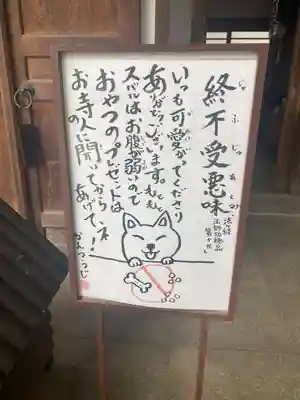 終不受悪味
じゅふじゅあくみ
法華経
法師功徳品
第十九
いつも可愛がってくださり
ありがとうございます。でも
スバルはお腹が弱いので
おやつのプレゼントは
お寺の人に聞いてから
あげて!
がんつうじ